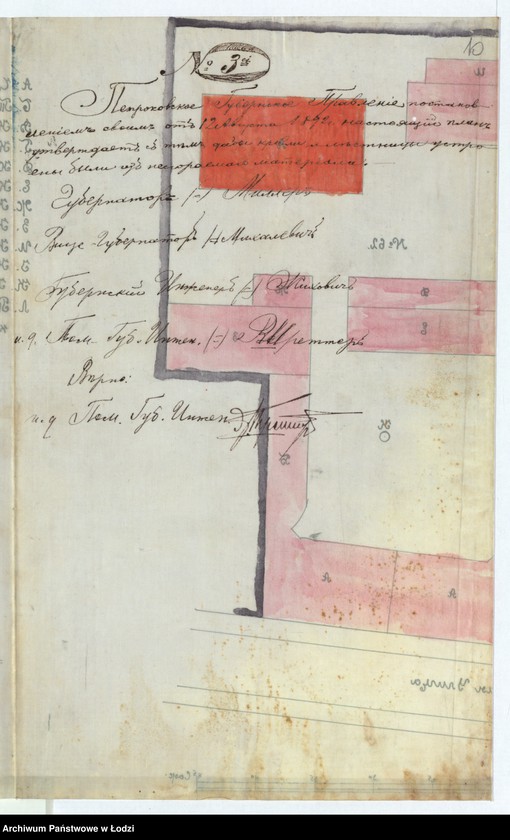 № 3й
10
Петроковское Губернское Правленіе постанов-
леніемъ своимъ отъ 12 Августа 1892 г. настоящій планъ
утверждаетъ съ тѣмъ, дабы кровли и лѣстницы устро
ены были изъ несгораемаго матеріала.
Губернаторъ (-) Миллеръ
Вице-Губернаторъ (-) Михалевичъ
№ 62.
Губернскій Инженеръ (-)
и. д. Пом. Губ. Инжен. (-) Шреттеръ
Вѣрно:
и. д. Пом. Губ. Инжен.
Улица
Archiwum Państwowe w Łodzi